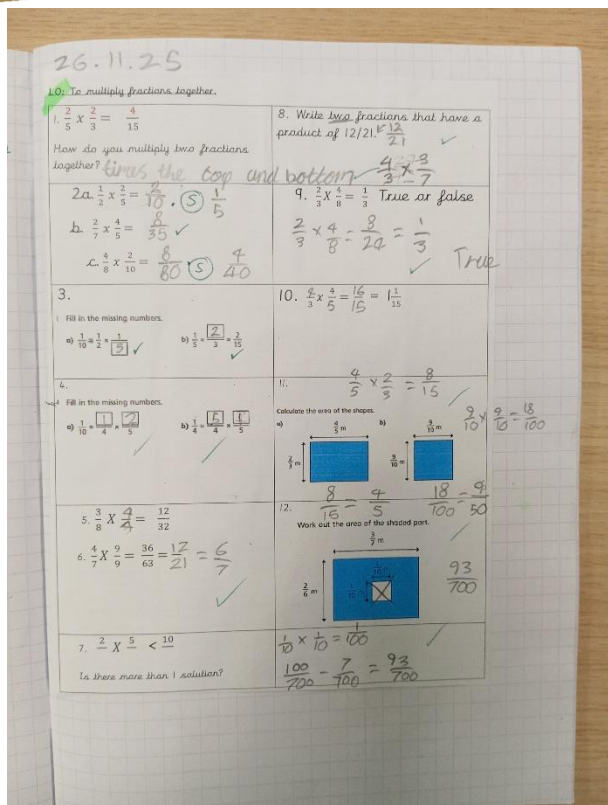 26.11.25
LO: To multiply fractions together.
1. 2/5 x 2/3 = 4/15
How do you multiply two fractions
together? times the top and bottom
2a. 1/2 x 2/5 = 2/10 . S 1/5
b. 2/7 x 4/5 = 8/35 ✓
c. 4/8 x 2/10 = 8/80 . S 4/40
3.
Fill in the missing numbers.
a) 1/10 = 1/2 × 1/5 ✓ b) 1/5 × 2/3 = 2/15 ✓
4.
Fill in the missing numbers.
a) 1/10 = 1/4 × 2/5 b) 1/4 = 5/4 × 1/5
5. 3/8 X 4/4 = 12/32
6. 4/7 X 9/9 = 36/63 = 12/21 = 6/7
7. 2 X 5 < 10
Is there more than 1 solution?
8. Write two fractions that have a
product of 12/21. 12/21
4/3 × 3/7
9. 2/3 X 4/8 = 1/3 True or false
2/3 × 4/8 = 8/24 = 1/3
True
10. 4/3 x 4/5 = 16/15 = 1 1/15
11. 4/5 × 2/3 = 8/15
Calculate the area of the shapes.
9/10 × 9/10 = 18/100
a) 4/5 m b) 9/10 m
2/3 m 9/10 m
8/15 = 4/5 18/100 = 9/50
12.
Work out the area of the shaded part.
3/7 m
1/10 m
2/6 m 1/10 m
93/700
1/10 × 1/10 = 1/100
100/700 - 7/700 = 93/700